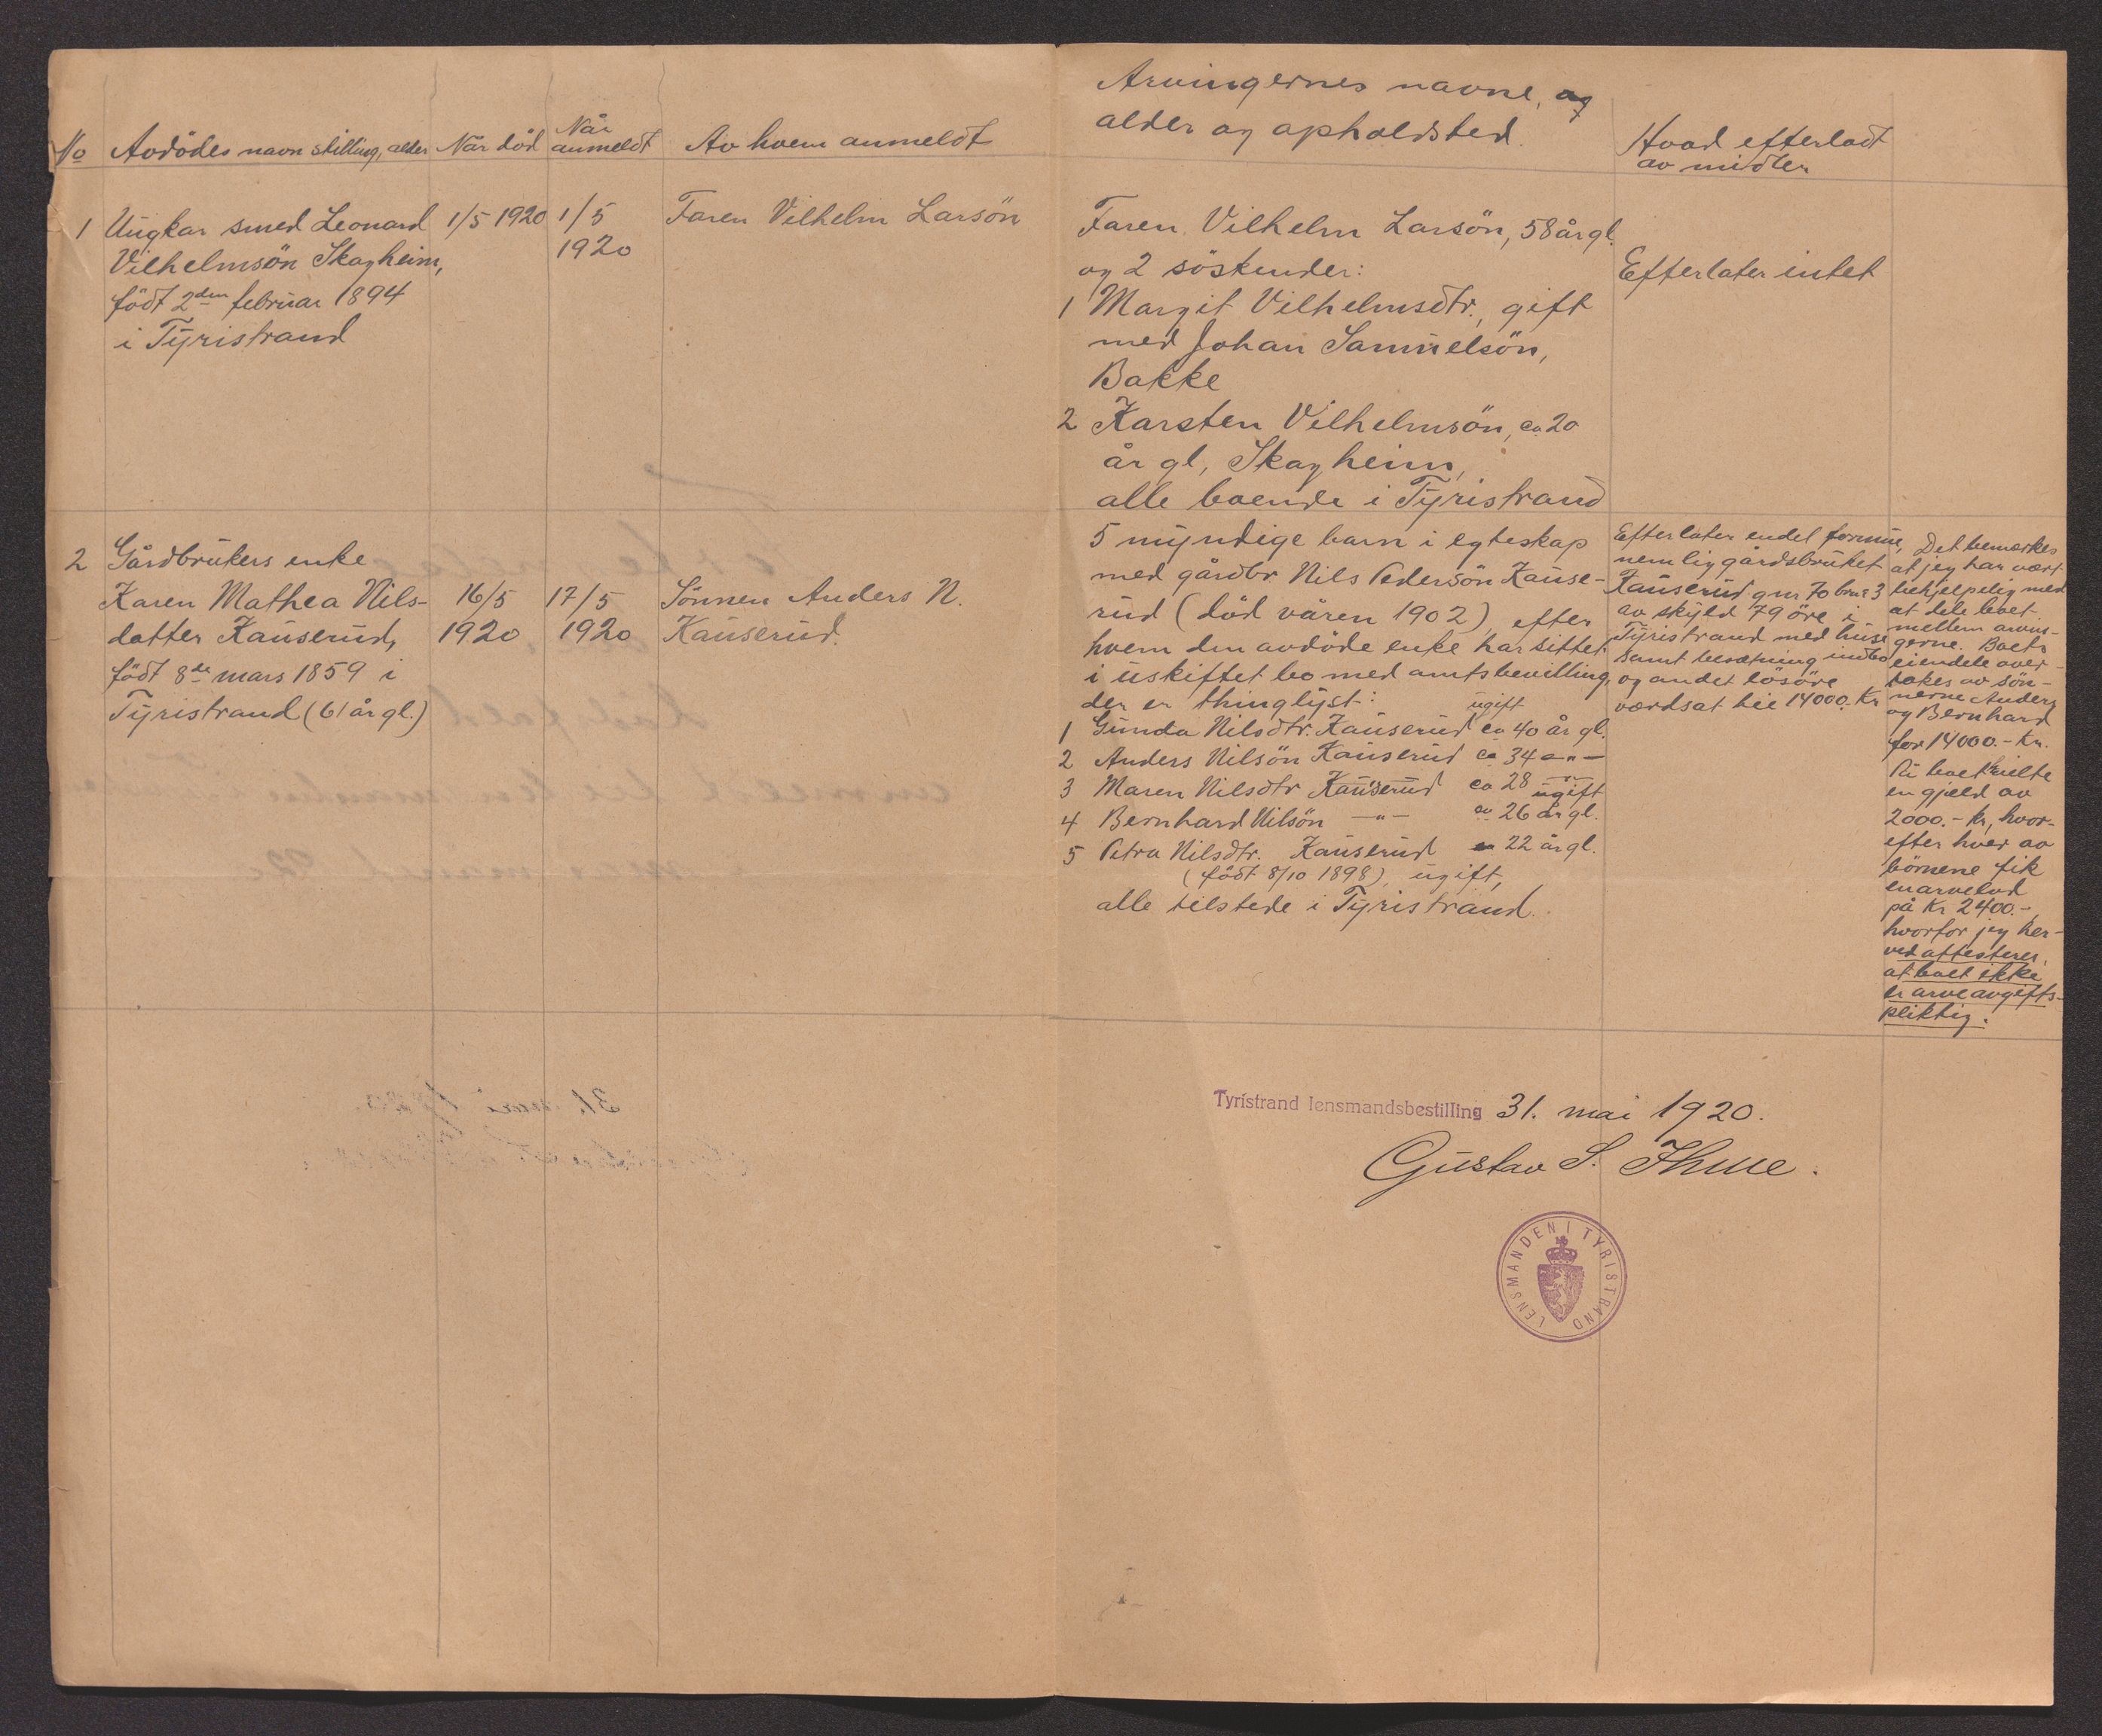 No Avdödes navn stilling, alder Når död Når anmeldt Av hvem anmeldt
Arvingernes navne, og
alder og opholdsted.
Hvad efterladt
av midler
1 Ungkar smed Leonard
Vilhelmsön Skagheim,
födt 2den februar 1894
i Tyristrand
1/5 1920
1/5
1920
Faren Vilhelm Larsön
Faren Vilhelm Larsön, 58 år gl.
og 2 söskender:
1 Margit Vilhelmsdtr., gift
med Johan Samuelsön,
Bakke
2 Karsten Vilhelmsön, ca 20
år gl, Skagheim,
alle boende i Tyristrand
Efterlater intet
2 Gårdbrukers enke
Karen Mathea Nils-
datter Kauserud,
födt 8de mars 1859 i
Tyristrand (61 år gl.)
16/5
1920
17/5
1920
Sönnen Anders N.
Kauserud.
5 myndige barn i egteskap
med gårdbr Nils Pedersön Kause-
rud (död våren 1902) efter
hvem den avdöde enke har sittet
i uskiftet bo med amtsbevilling,
der er thinglyst:
1 Gunda Nilsdtr. Kauserud ugift ca 40 år gl.
2 Anders Nilsön Kauserud ca 34 -"-
3 Maren Nilsdtr Kauserud ca 28 -"- ugift
4 Bernhard Nilsön -"- ca 26 år gl.
5 Petra Nilsdtr. Kauserud 22 år gl.
(födt 8/10 1898), ugift,
alle tilstede i Tyristrand.
Efterlater endel formue,
nemlig gårdsbruket
Kauserud gnr 70 brnr 3
av skyld 79 öre i
Tyristrand med huse
samt besætning, indbo
og andet lösöre
værdsat til 14000.- Kr
Det bemerkes
at jeg har vært
behjelpelig med
at dele boet
mellem arvin-
gerne. Boets
eiendele over-
takes av sön-
nerne Anders
og Bernhard
for 14000.- Kr.
På boet hvilte
en gjeld av
2000.- Kr, hvor-
efter hver av
börnene fik
en arvelod
på Kr 2400.-,
hvorfor jeg her-
ved attesterer,
at boet ikke
er arveavgifts-
pliktig.
Tyristrand lensmandsbestilling 31. mai 1920.
Gustav S. Ihme.
LENSMANDEN I TYRISTRAND